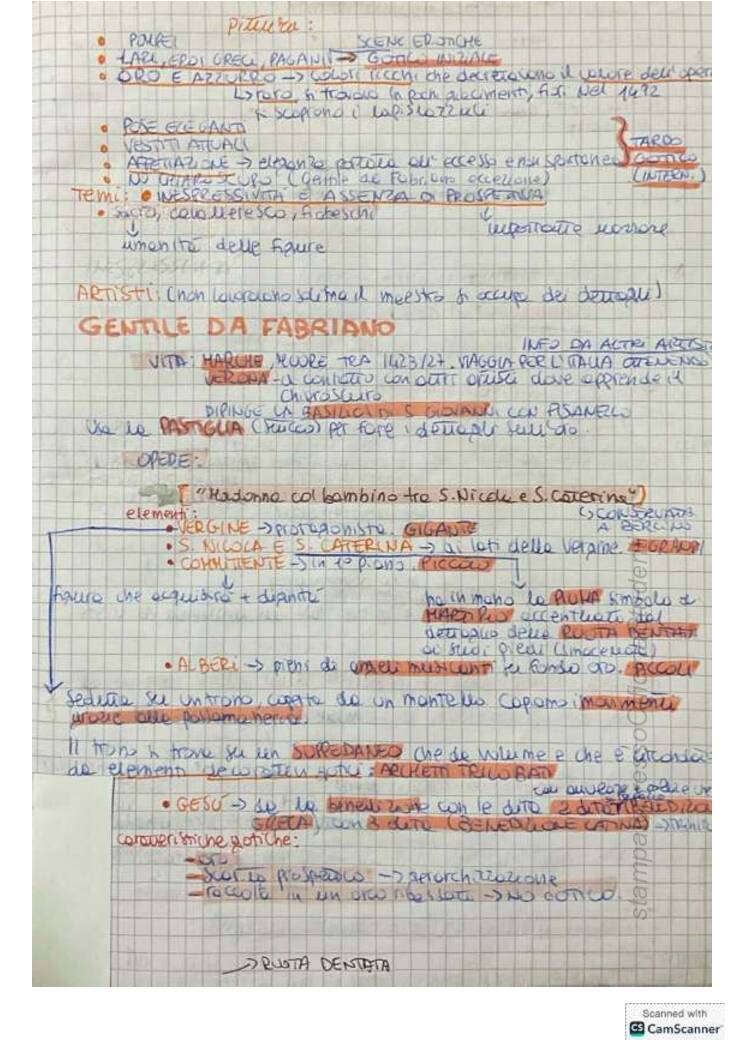 Pittura:
• POMPEI SCENE EROTICHE
• LARI, EROI GRECI, PAGANI → GOTICO INIZIALE
• ORO E AZZURRO → colori ricchi che decretavano il valore dell'opera
↳ raro, si trovano in pochi giacimenti, nel 1492
si scoprono i lapislazzuli
• POSE ELEGANTI
• VESTITI ATTUALI
• AFFETTAZIONE → eleganza portata all'eccesso e non spontanea
• NO CHIAROSCURO (Gentile da Fabriano eccezione)
TARDO
GOTICO
(INTERN.)
Temi: • INESPRESSIVITÀ E ASSENZA DI PROSPETTIVA
• sacro, cavalleresco, fiabeschi
umanità delle figure
importante narrare
ARTISTI: (non lavoravano soli ma il maestro si occupa dei dettagli)
GENTILE DA FABRIANO
INFO DA ALTRI ARTISTI
VITA: MARCHE, MUORE TRA 1423/27. VIAGGIA PER L'ITALIA OTTENENDO
VERONA - a contatto con altri artisti dove apprende il
chiaroscuro
DIPINGE LA BASILICA DI S. GIOVANNI CON PISANELLO
Usa la PASTIGLIA (stucco) per fare i dettagli sull'oro.
OPERE:
["Madonna col bambino tra S. Nicola e S. Caterina")
↳ CONSERVATA
A BERLINO
elementi:
• VERGINE → protagonista. GIGANTE
• S. NICOLA E S. CATERINA → ai lati della Vergine. GRANDI
• COMMITENTE → in 1° piano. PICCOLO
figura che acquisirà + dignità
ha in mano la PALMA simbolo di
MARTIRIO accentuato dal
dettaglio della RUOTA DENTATA
ai suoi piedi
• ALBERI → pieni di angeli musicanti su fondo oro. PICCOLI
Seduta su un trono, coperta da un mantello movimenti
grazie alla passamaneria.
Il trono si trova su un SUPPEDANEO che dà volume e che è circondato
da elementi decorativi gotici: ARCHETTI TRILOBATI
• GESÙ → dà la benedizione con le dita 2 dita (BENEDIZIONE
GRECA), con 3 dita (BENEDIZIONE LATINA)
caratteristiche gotiche:
- oro
- scorcio prospettico → gerarchizzazione
- raccolta in un arco ribassato → NO GOTICO.
→ RUOTA DENTATA
Scanned with
CS CamScanner